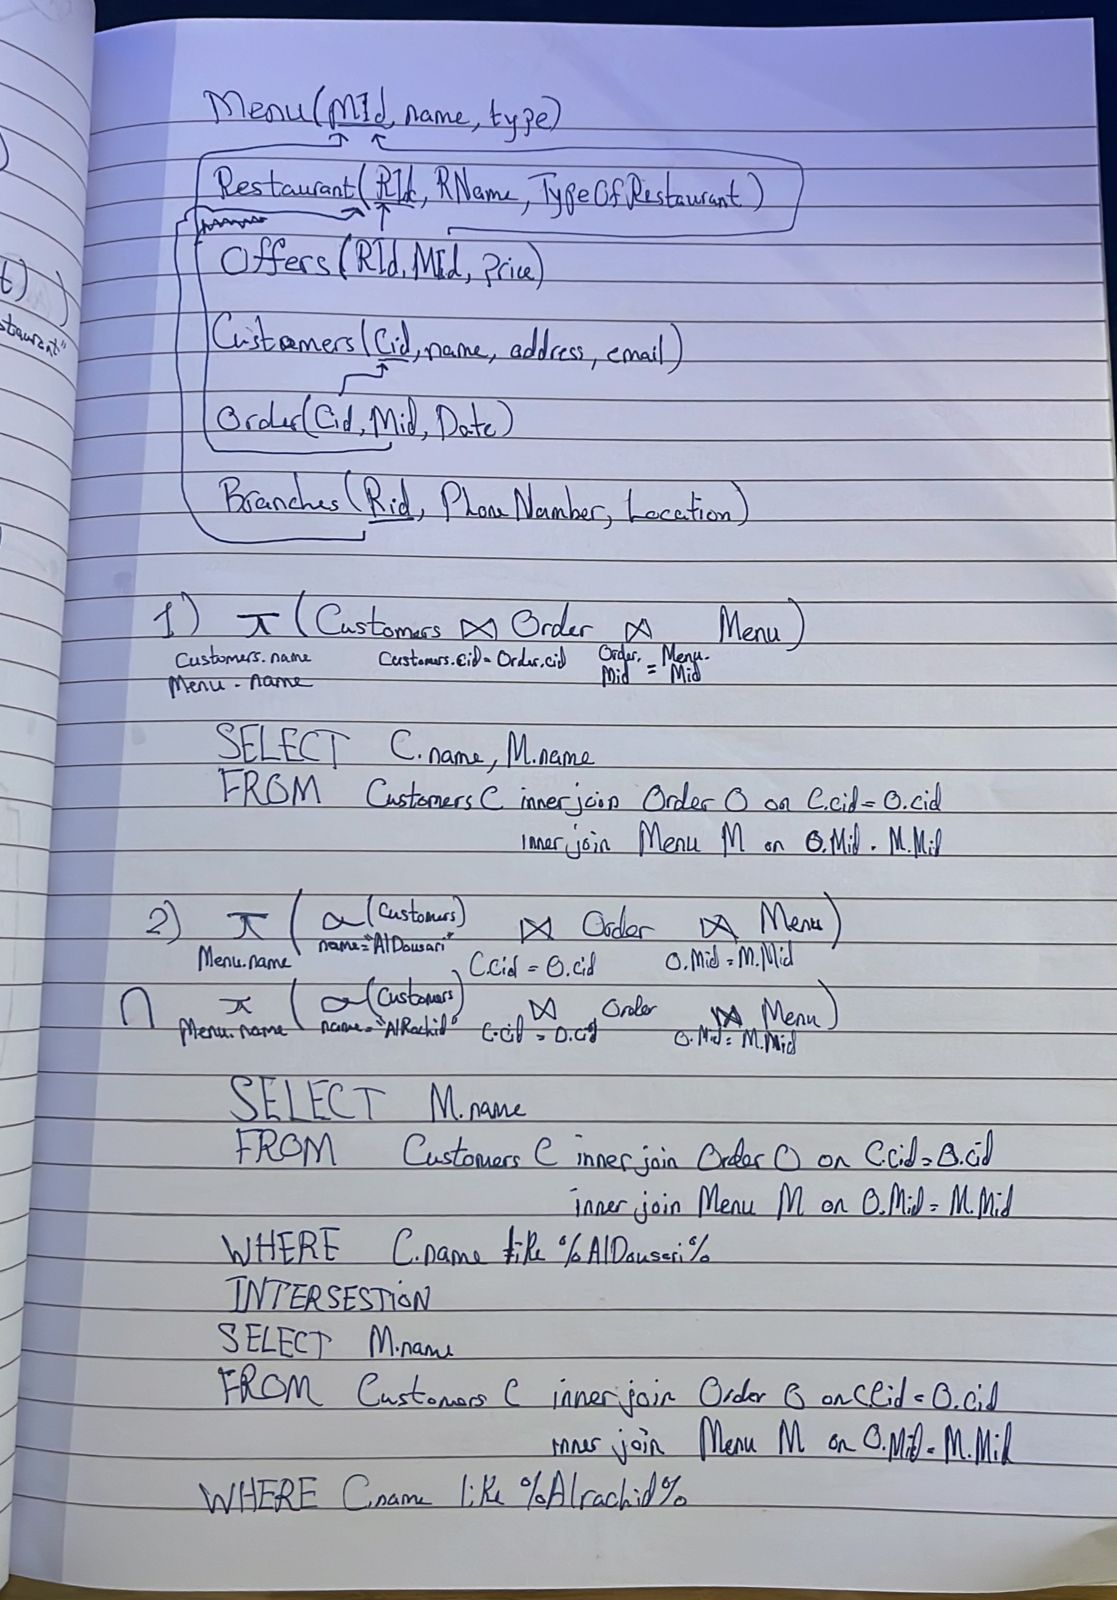 Menu(MId, name, type)
Restaurant(RId, RName, TypeOfRestaurant)
Offers(RId, MId, price)
Customers(Cid, name, address, email)
Order(Cid, Mid, Date)
Branches(Rid, PhoneNumber, Location)
1) π (Customers ⋈ Order ⋈ Menu)
Customers.name Customers.cid = Order.cid Order.Mid = Menu.Mid
Menu.name
SELECT C.name, M.name
FROM Customers C inner join Order O on C.cid = O.cid
inner join Menu M on O.Mid = M.Mid
2) π ( σ(Customers) ⋈ Order ⋈ Menu)
Menu.name name="AlDousari" C.Cid = O.cid O.Mid = M.Mid
∩ π ( σ(Customers) ⋈ Order ⋈ Menu)
Menu.name name="AlRachid" C.Cid = O.cid O.Mid = M.Mid
SELECT M.name
FROM Customers C inner join Order O on C.cid = O.cid
inner join Menu M on O.Mid = M.Mid
WHERE C.name like %AlDousari%
INTERSESTION
SELECT M.name
FROM Customers C inner join Order O on C.Cid = O.cid
inner join Menu M on O.Mid = M.Mid
WHERE C.name like %Alrachid%
t) )
staurant"